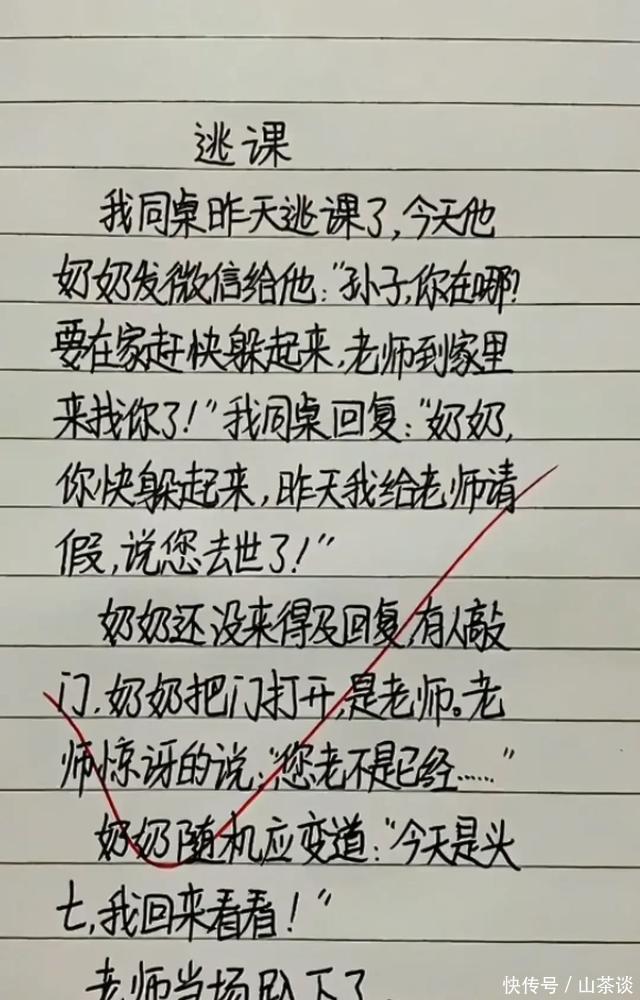 逃课
我同桌昨天逃课了,今天他
奶奶发微信给他:"孙子,你在哪?
要在家赶快躲起来,老师到家里
来找你了!"我同桌回复:"奶奶,
你快躲起来,昨天我给老师请
假,说您去世了!"
奶奶还没来得及回复,有人敲
门,奶奶把门打开,是老师。老
师惊讶的说:"您老不是已经……"
奶奶随机应变道:"今天是头
七,我回来看看!"
老师当场趴下了
快传号/山茶谈